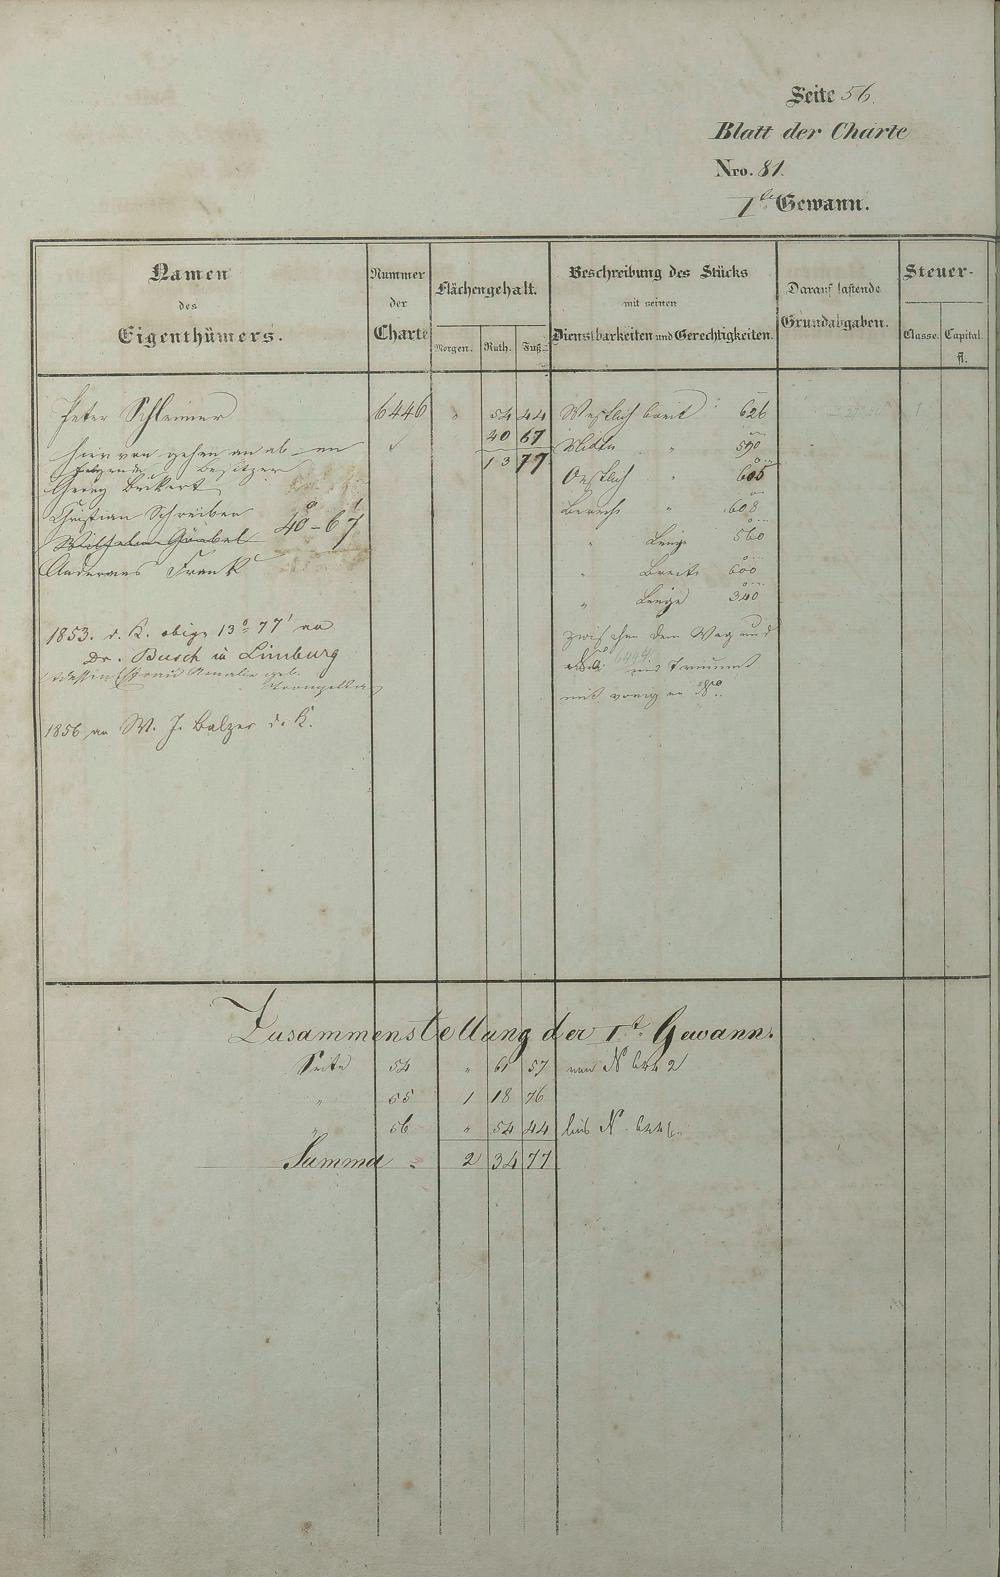 Seite 56.
Blatt der Charte
Nro. 81.
1te Gewann.
Namen
des
Eigenthümers.
Nummer
der
Charte
Flächengehalt.
Morgen. Ruth. Fuß.
Beschreibung des Stücks
mit seinen
Dienstbarkeiten und Gerechtigkeiten.
Darauf lastende
Grundabgaben.
Steuer-
Classe. Capital.
fl.
Peter Schleimer 6446 " 54 44 Westlich breit 626
40 67 Mitten " 590
hiervon gehen an ab
folgende Besitzer 13 77 Oestlich " 605
Georg Bickert
Christian Schreiber 40 - 67 " 608
Wilhelm Göebel " Länge 560
Andereas Frank " Breite 600
" Länge 340
1853. d. K. obige 13° 77' an
Dr. Busch in Limburg
zwischen dem Weg und
6444
mit vorigen No.
1856 an W. J. Balzer d. K.
Zusammenstellung der 1t Gewann.
Seite 54 " 61 57 von N 6442
" 55 1 18 76
" 56 " 54 44 bis N. 6446.
Summa 2 34 77